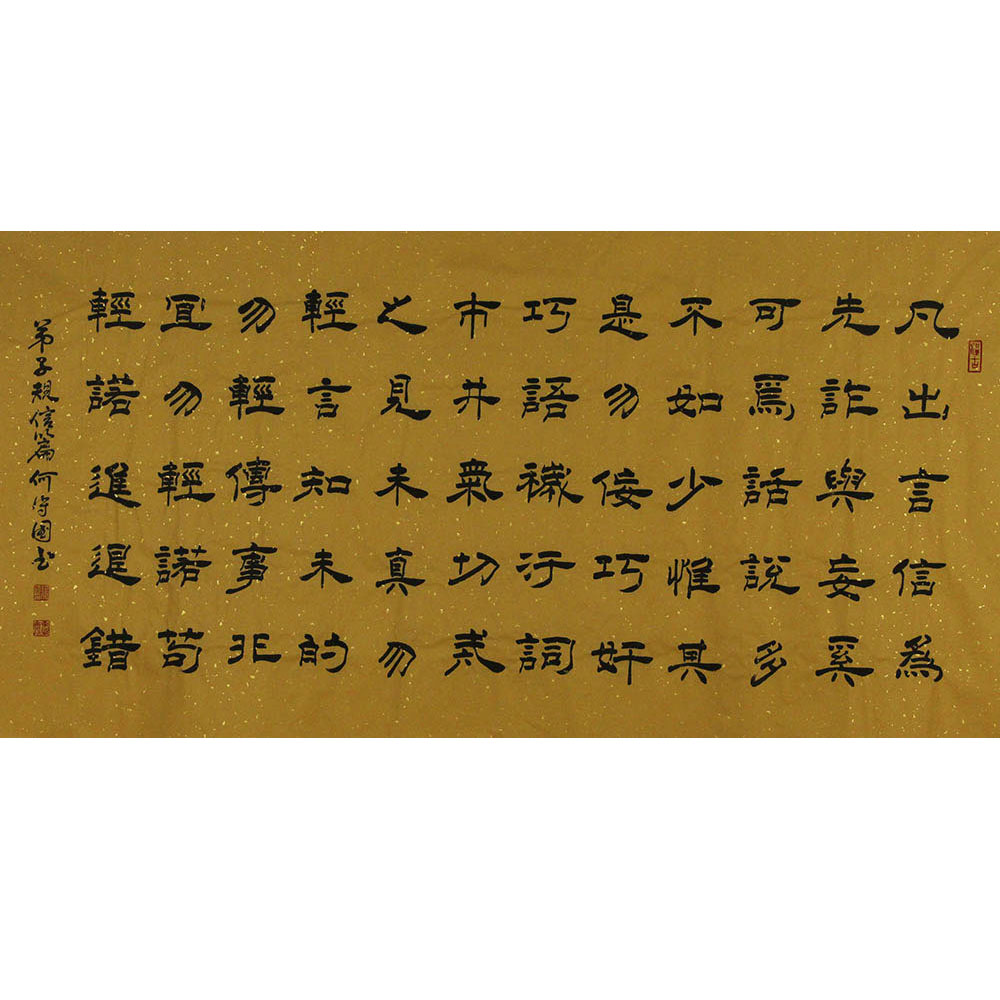 凡出言信為
先詐與妄奚
可爲話說多
不如少惟其
是勿佞巧奸
巧語穢汙詞
市井氣切戒
之見未真勿
輕言知未的
勿輕傳事非
宜勿輕諾苟
輕諾進退錯
弟子規信篇何國书